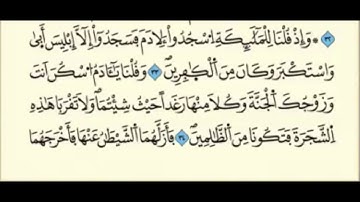 ۞ وَإِذْ قُلْنَا لِلْمَلَٰٓئِكَةِ اِ۟سْجُدُواْ لِأٓدَمَ فَسَجَدُوٓاْ إِلَّآ إِبْلِيسَ أَب۪ىٰ
وَاسْتَكْبَرَ وَكَانَ مِنَ اَ۬لْكٰ۪فِرِينَۖ ٣٣ وَقُلْنَا يَٰٓـَٔادَمُ اُ۟سْكُنْ أَنتَ
وَزَوْجُكَ اَ۬لْجَنَّةَ وَكُلَا مِنْهَا رَغَداً حَيْثُ شِئْتُمَاۖ وَلَا تَقْرَبَا هَٰذِهِ
اِ۬لشَّجَرَةَ فَتَكُونَا مِنَ اَ۬لظَّٰلِمِينَۖ ٣٤ فَأَزَلَّهُمَا اَ۬لشَّيْطَٰنُ عَنْهَا فَأَخْرَجَهُمَا